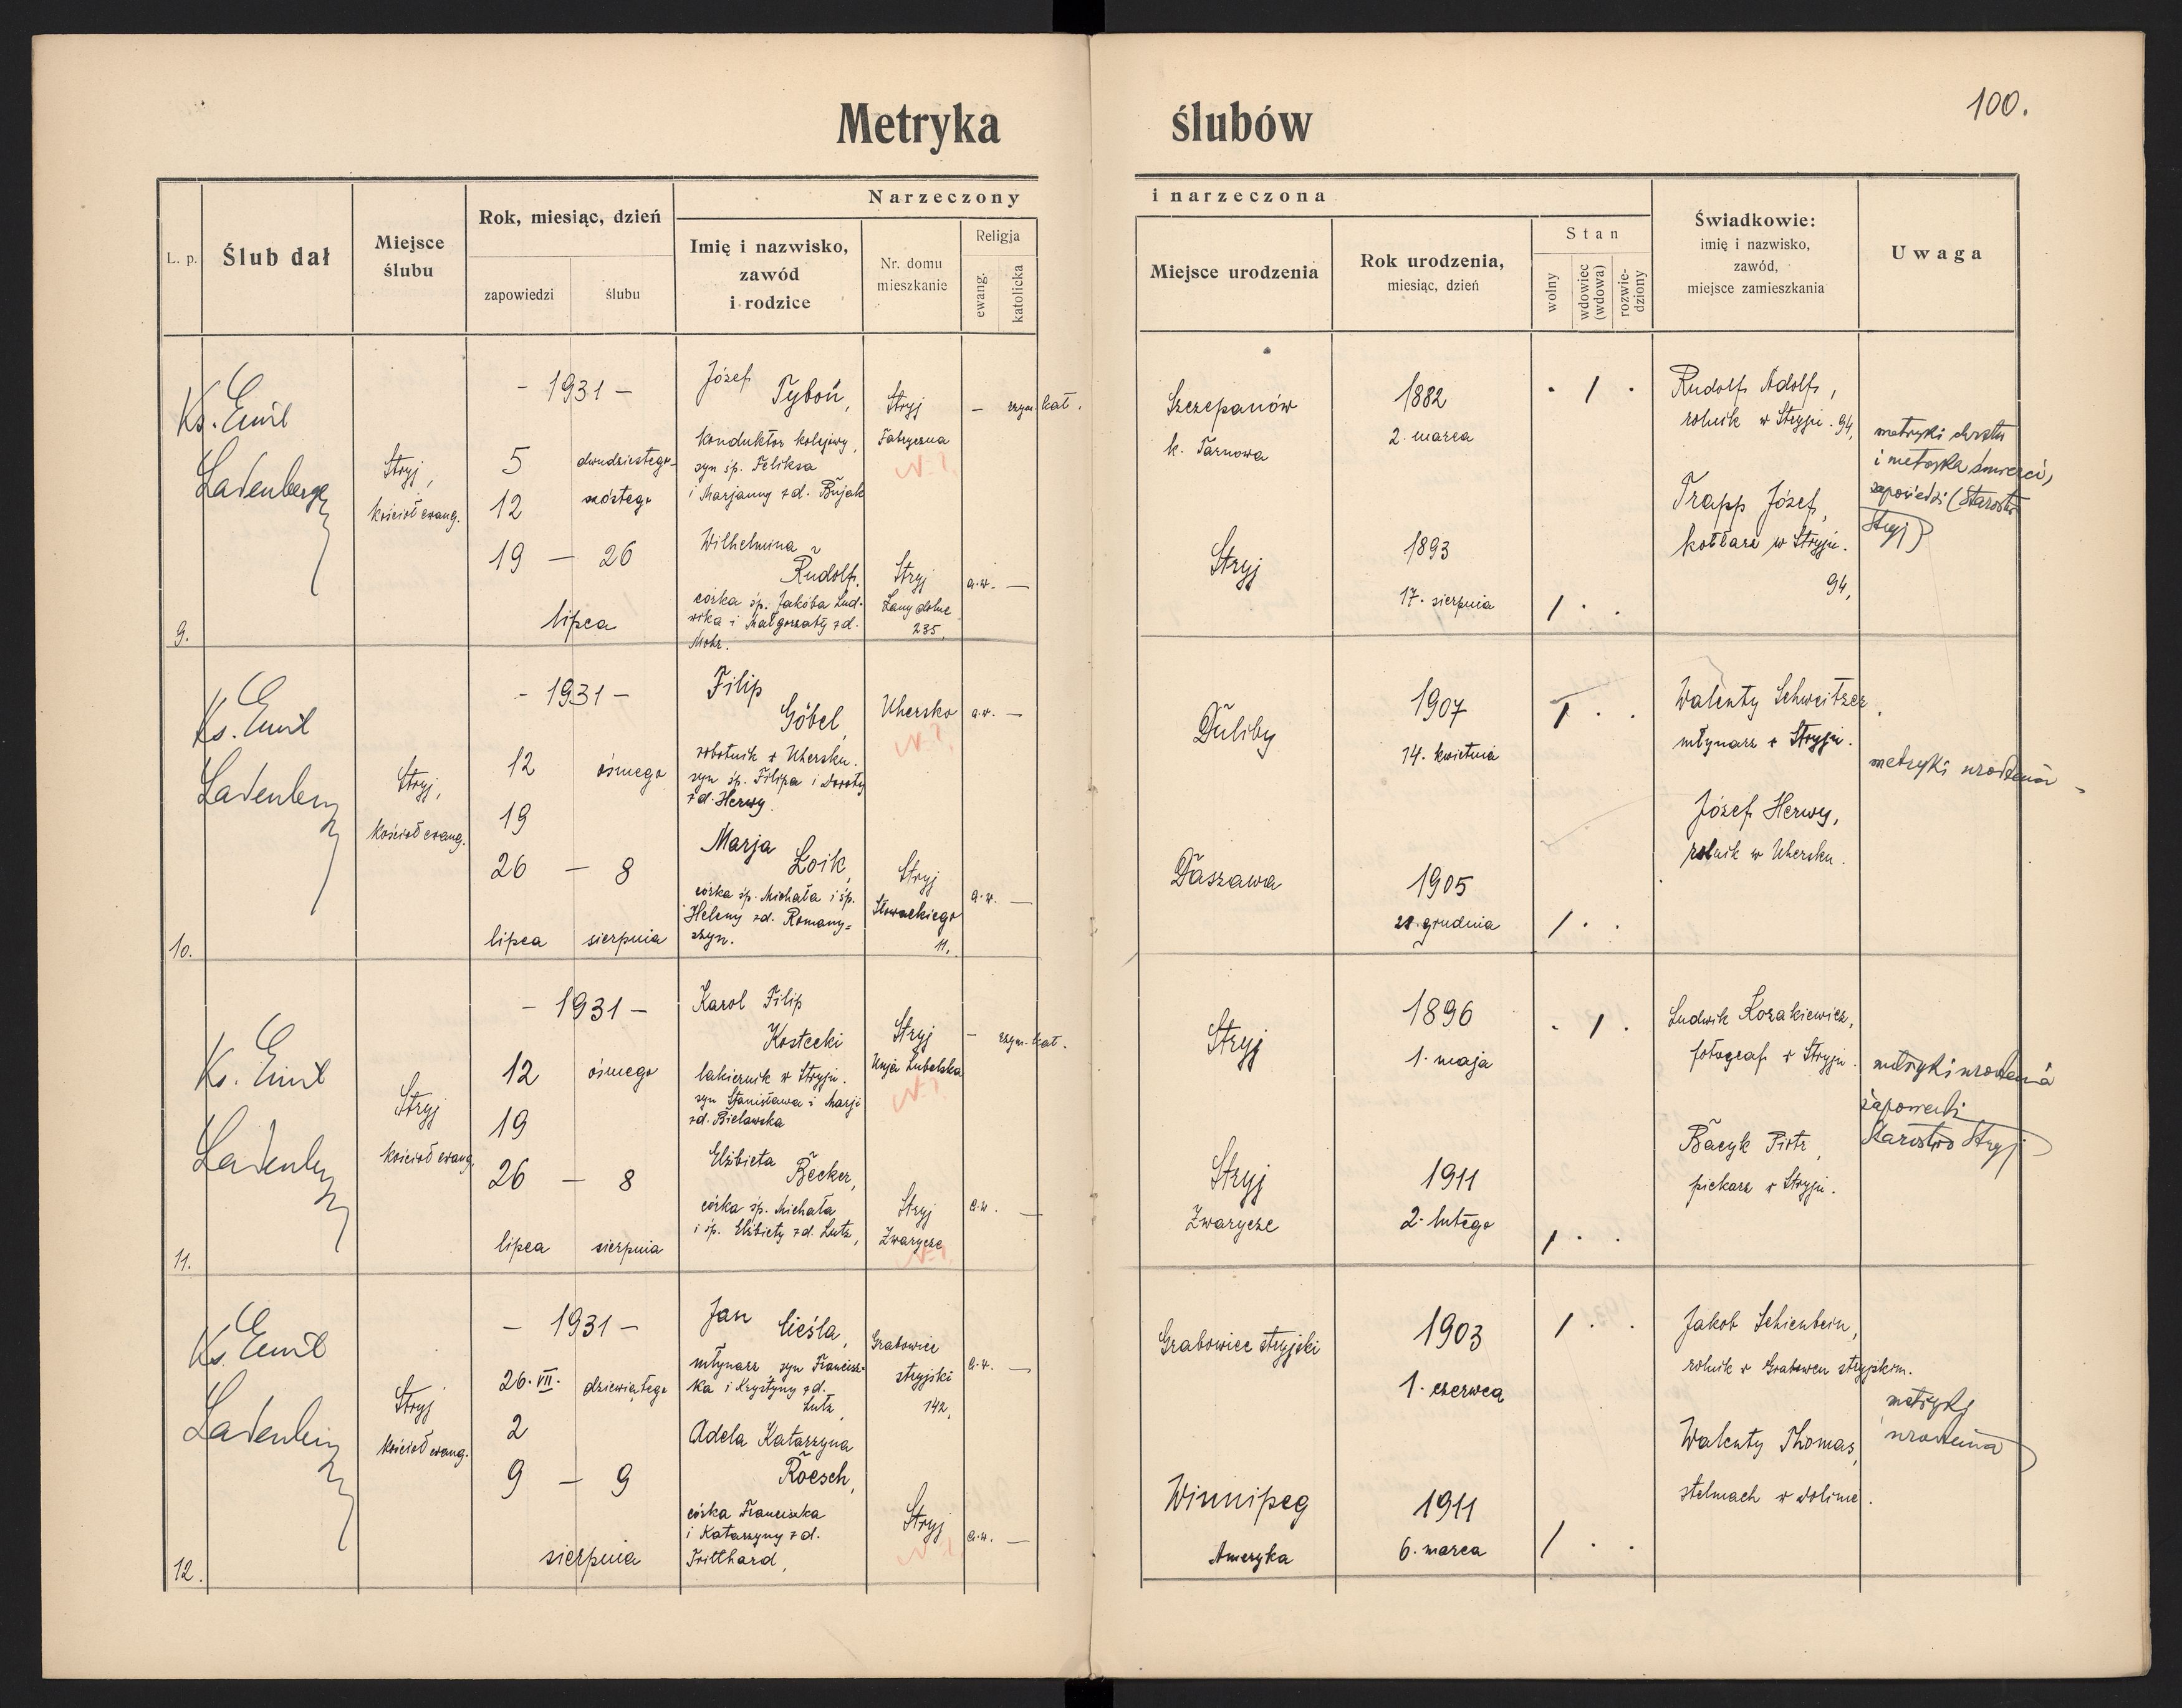 Metryka ślubów
100.
L. p.
Ślub dał
Miejsce
ślubu
Rok, miesiąc, dzień
zapowiedzi
ślubu
Narzeczony
i narzeczona
Imię i nazwisko,
zawód
i rodzice
Nr. domu
mieszkanie
Religja
ewang.
katolicka
Miejsce urodzenia
Rok urodzenia,
miesiąc, dzień
Stan
wolny
wdowiec
(wdowa)
rozwie-
dziony
Świadkowie:
imię i nazwisko,
zawód,
miejsce zamieszkania
Uwaga
9.
Ks. Emil
Ladenberger
Stryj,
kościół ewang.
- 1931 -
5
dwudziestego
12
szóstego
19 — 26
lipca
Józef
Tyboń,
konduktor kolejowy,
syn śp. Feliksa
i Marjanny z d. Bujak
Stryj
Fabryczna
N. ?.
— rzym. kat.
Szczepanów
k. Tarnowa
1882
2. marca
. / .
Wilhelmina
Rudolf,
córka śp. Jakóba Lud-
wika i Małgorzaty z d.
Mohr.
Stryj
Łany dolne
235.
a.w. —
Stryj
1893
17. sierpnia
/ . .
Rudolf Adolf,
rolnik w Stryju. 94,
Trapp Józef,
kotlarz w Stryju.
94,
metryki chrztu
i metryka śmierci,
zapowiedzi (Starostwo
Stryj)
10.
Ks. Emil
Ladenberg
Stryj,
kościół ewang.
- 1931 -
12
ósmego
19
26 — 8
lipca
sierpnia
Filip
Göbel,
robotnik w Uhersku.
syn śp. Filipa i Doroty
z d. Herwy.
Uhersko
N. ?.
a.w. —
Duliby
1907
14. kwietnia
/ . .
Marja
Łoik,
córka śp. Michała i śp.
Heleny z d. Romany-
szyn.
Stryj
Słowackiego
11.
a.w. —
Daszawa
1905
21. grudnia
/ . .
Walenty Schweitzer
młynarz w Stryju.
Józef Herwy,
rolnik w Uhersku.
metryki urodzenia
11.
Ks. Emil
Ladenberg
Stryj
kościół ewang.
- 1931 -
12
ósmego
19
26 — 8
lipca
sierpnia
Karol Filip
Kostecki
lakiernik w Stryju.
syn Stanisława i Marji
z d. Bielawska
Stryj
Unja Lubelska
N. ?.
— rzym. kat.
Stryj
1896
1. maja
. / .
Elżbieta
Becker,
córka śp. Michała
i śp. Elżbiety z d. Lutz,
Stryj
Zwarycze
N. ?.
a.w. —
Stryj
Zwarycze
1911
2. lutego
/ . .
Ludwik Kozakiewicz,
fotograf w Stryju.
Bacyk Piotr,
piekarz w Stryju.
metryki urodzenia
zapowiedzi
Starostwo Stryj
12.
Ks. Emil
Ladenberg
Stryj
kościół ewang.
- 1931 -
26. VII.
dziewiątego
2
9 — 9
sierpnia
Jan Cieśla,
młynarz syn Francisz-
ka i Krystyny z d.
Lutz,
Grabowiec
stryjski
142,
a.w. —
Grabowiec stryjski
1903
1. czerwca
/ . .
Adela Katarzyna
Roesch,
córka Franciszka
i Katarzyny z d.
Tritthard,
Stryj
N. ?.
a.w. —
Winnipeg
Ameryka
1911
6. marca
/ . .
Jakob Schienbein,
rolnik w Grabowcu stryjskim.
Walenty Thomas,
stelmach w Dolinie.
metryki
urodzenia